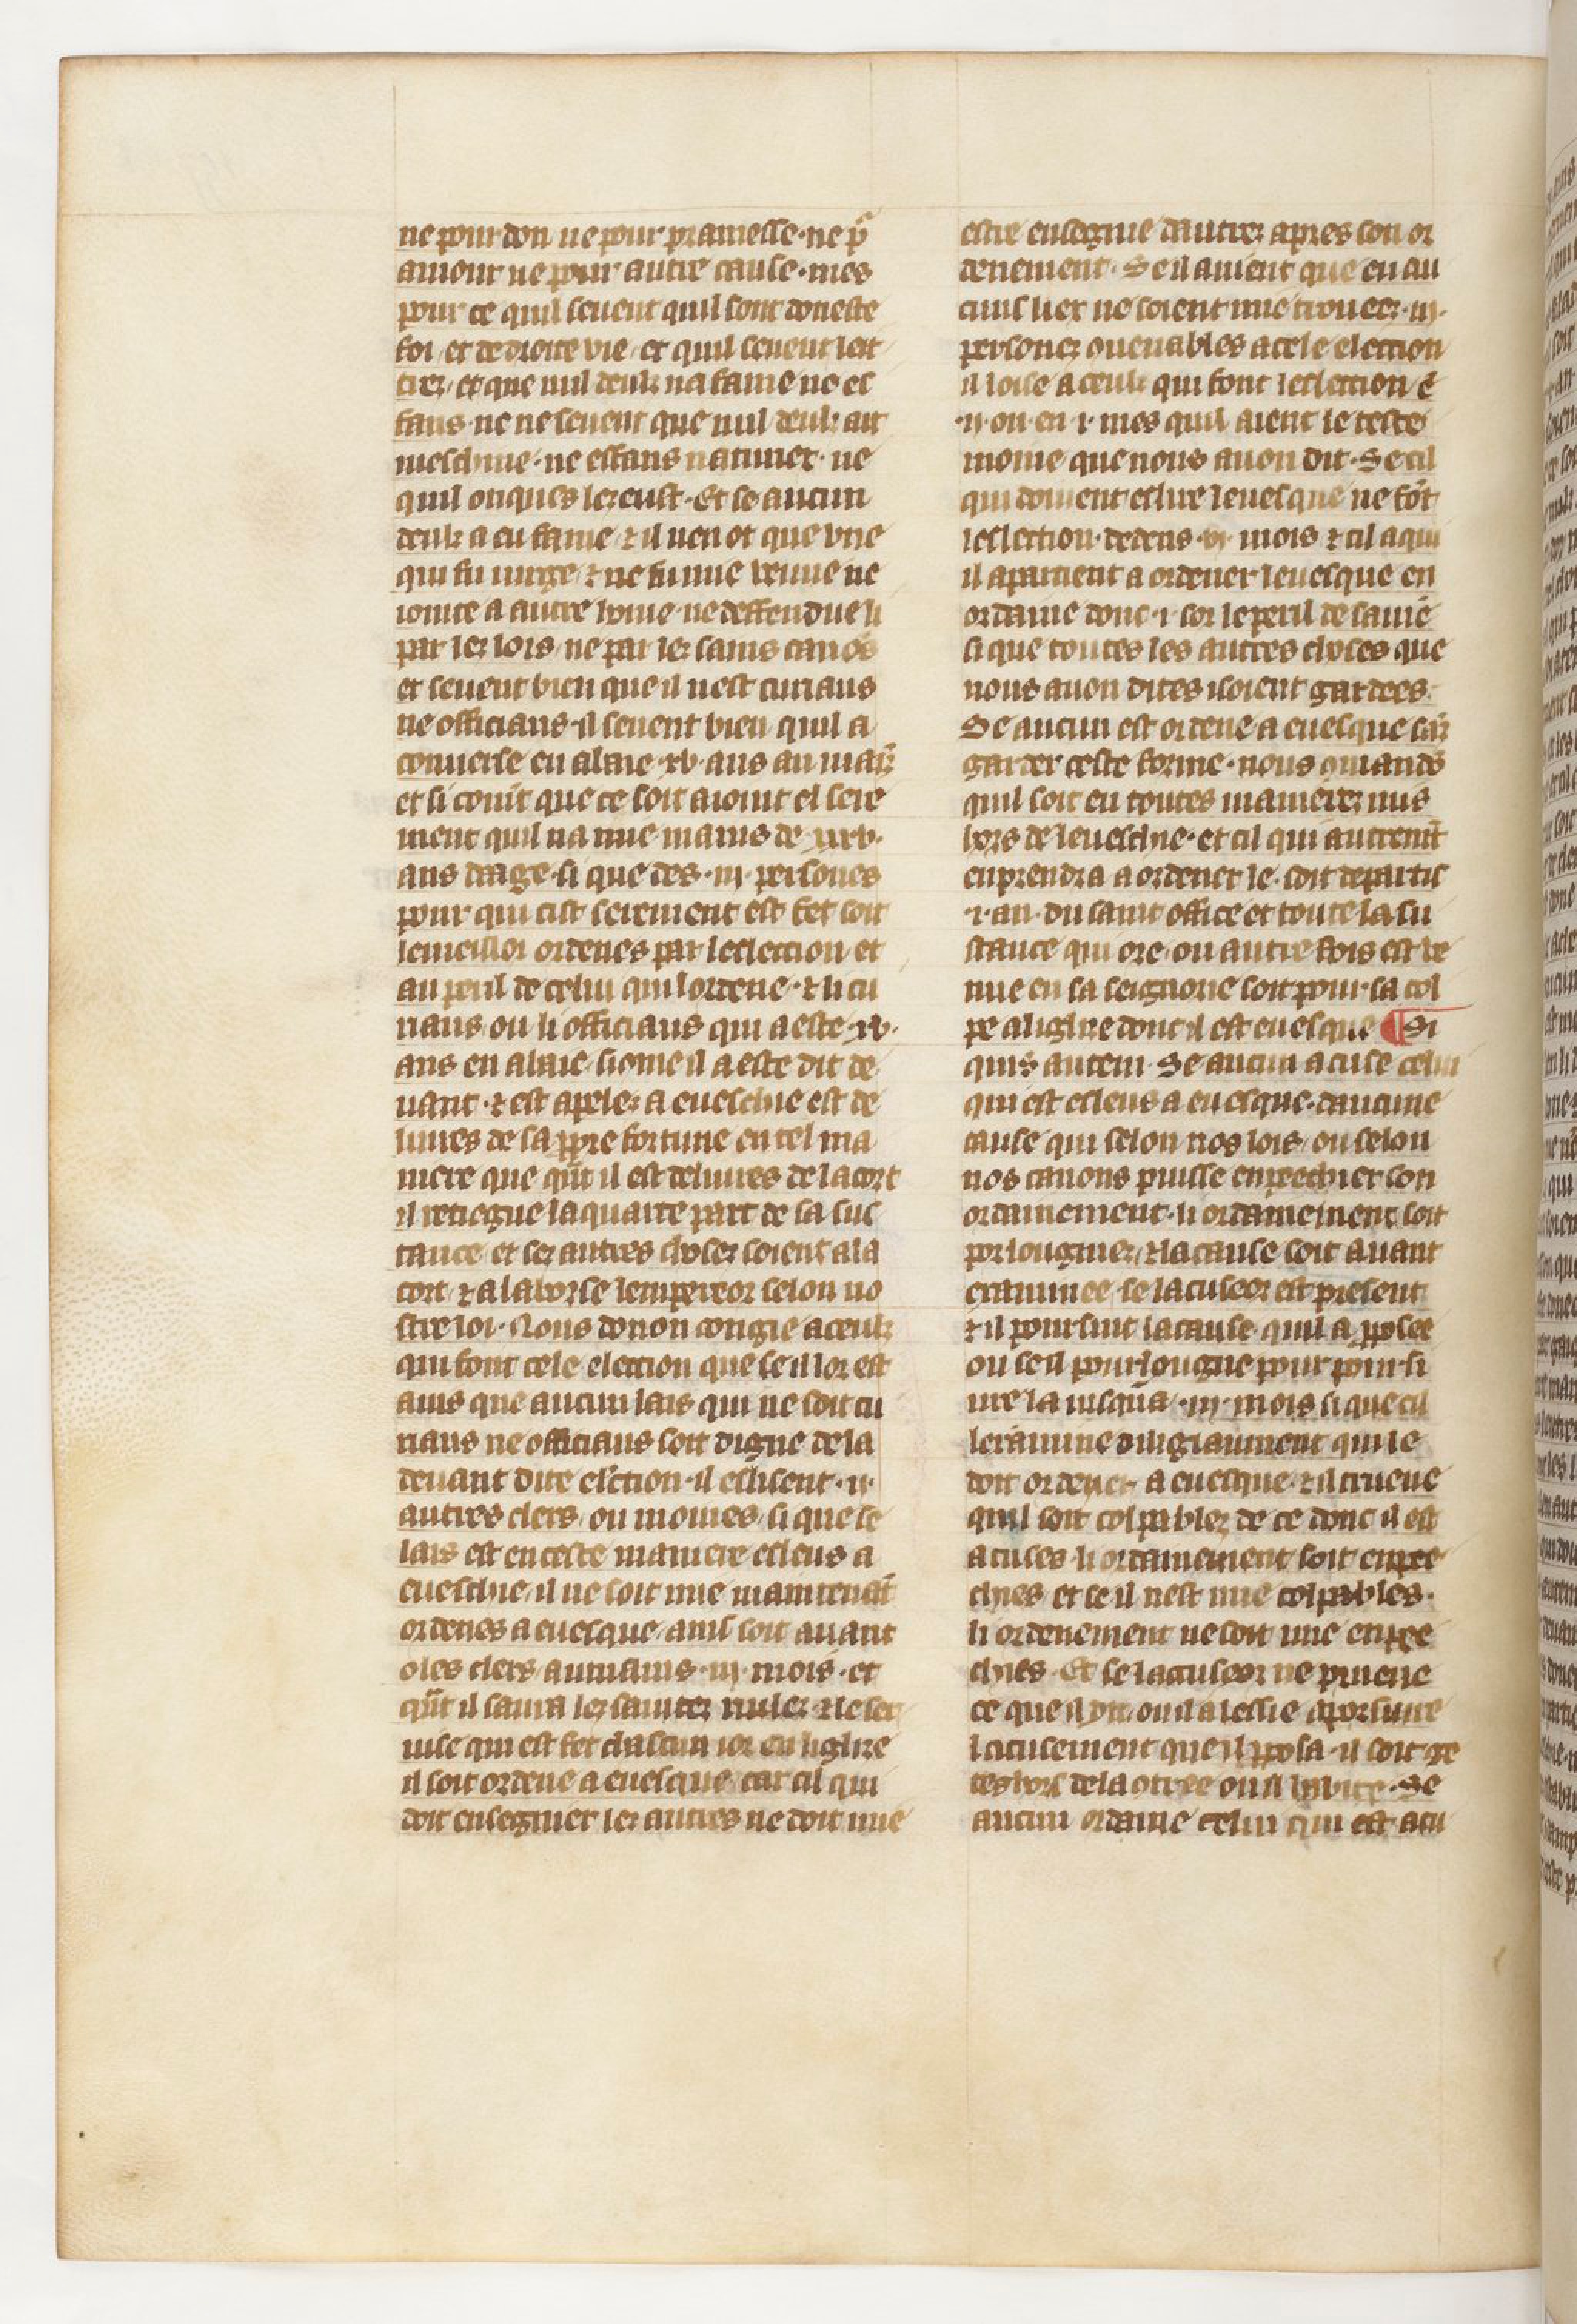 ne pour don ne pour pramesse · ne pͬ
amour ne pour autre cause · mes
pour ce quil seuent quil sont doneste
foi / et de droite vie / et quil seuent leit
trez / et que nul deulz na fame ne es
fans · ne ne seuent que nul deulz ait
meschine · ne esfans naturiex · ne
quil onques lez eust · Et se aucun
deulz a eu fame / ⁊ il nen ot que vne
qui fu uirge / ⁊ ne fu mie veuue ne
iointe a autre home · ne deffendue li
par lez lois / ne par lez sains canōs
et seuent bien que il nest curiaus
ne officiaus · il seuent bien quil a
conuerse en alaie · xv · ans au mais
et si couīt que ce soit aiouit el sere
ment quil na mie mains de · xxxv ·
ans daage · si que des · iii · persones
pour qui cist serement est fet soit
le meillor ordenes par leslection et
au peril de celui qui lordene · ⁊ li cu
riaus / ou li officiaus qui a este · xv ·
ans en alaie · si ome il a este dit de
uant · ⁊ est apelez a eueschie est de
liures de sa ꝓpre fortune en tel ma
niere que qn̄t il est deliures de la cort
il retiegne la quarte part de sa sus
tance / et lez autres chosez soient a la
cort / ⁊ a la borse lempereor selon no
stre loi · Nous donon congie a ceulz
qui font cele election que se il lor est
auis que aucun lais qui ne soit cu
riaus ne officiaus soit digne de la
deuant dite elction · il eslisent · ii ·
autres clers / ou moines / si que se
lais est en ceste maniere esleus a
eueschie / il ne soit mie maintenāt
ordenes a euesque / ainz soit auant
o les clers au mains · iii · mois · et
qn̄t il saura lez saintez rulez ⁊ le ser
uise qui est fet chascun ior en liglize
il soit ordene a euesque / car cil qui
doit ensegnier lez autres ne doit mie
estre ensegnie dautrez apres son or
denement · Se il auient que en au
cuns liex ne soient mie trouees · iii ·
personez ouenables a cele election
il loise a ceulz qui font leslection ē
· ii · ou · en · i · mes quil aient le teste
moine que nous auon dit · Se cil
qui doiuent eslire leuesque ne fōt
leslection · dedens · vi · mois ⁊ cil a qui
il apartient a ordener leuesque en
ordaine donc · i · sor le peril de sa ame
si que toutes les autres choses que
nous auon dites i soient gardees ·
Se aucun est ordene a euesque sāz
garder ceste forme · nous gmandō
quil soit en toutes manierez mis
hors de leueschie · et cil qui autremt̄
enprendra a ordener le · soit departis
· i · an · du saint office et toute la su
stance qui ore / ou autre fois est ve
nue en sa seignorie soit pour sa col
pe a liglize dont il est euesque ¶ Si
quis autem · Se aucun acuse celui
qui est esleus a euesque · daucune
cause qui selon nos lois / ou selon
nos canons puisse enpeechier son
ordainement · li ordainement soit
porlougniez / ⁊ la cause soit auant
examinee · se lacuseor est present
⁊ il poursuit la cause quil a ꝓposee
ou se il pourlougne pour poursi
ure la iusqua · iii · mois si que cil
lexamine diligiaument qui le
doit ordener a euesque · ⁊ il trueue
quil soit colpablez de ce donc il est
acuses · li ordainement soit enpee
chies · et se il nest mie colpables ·
li ordenement ne soit mie enpee
chies · Et se lacuseor ne prueue
ce que il dit / ou il a lessie a porsuiure
lacusement que il ꝓposa · il soit ge
tes hors de la otree ou il habite · Se
aucun ordaine celui qui est acu